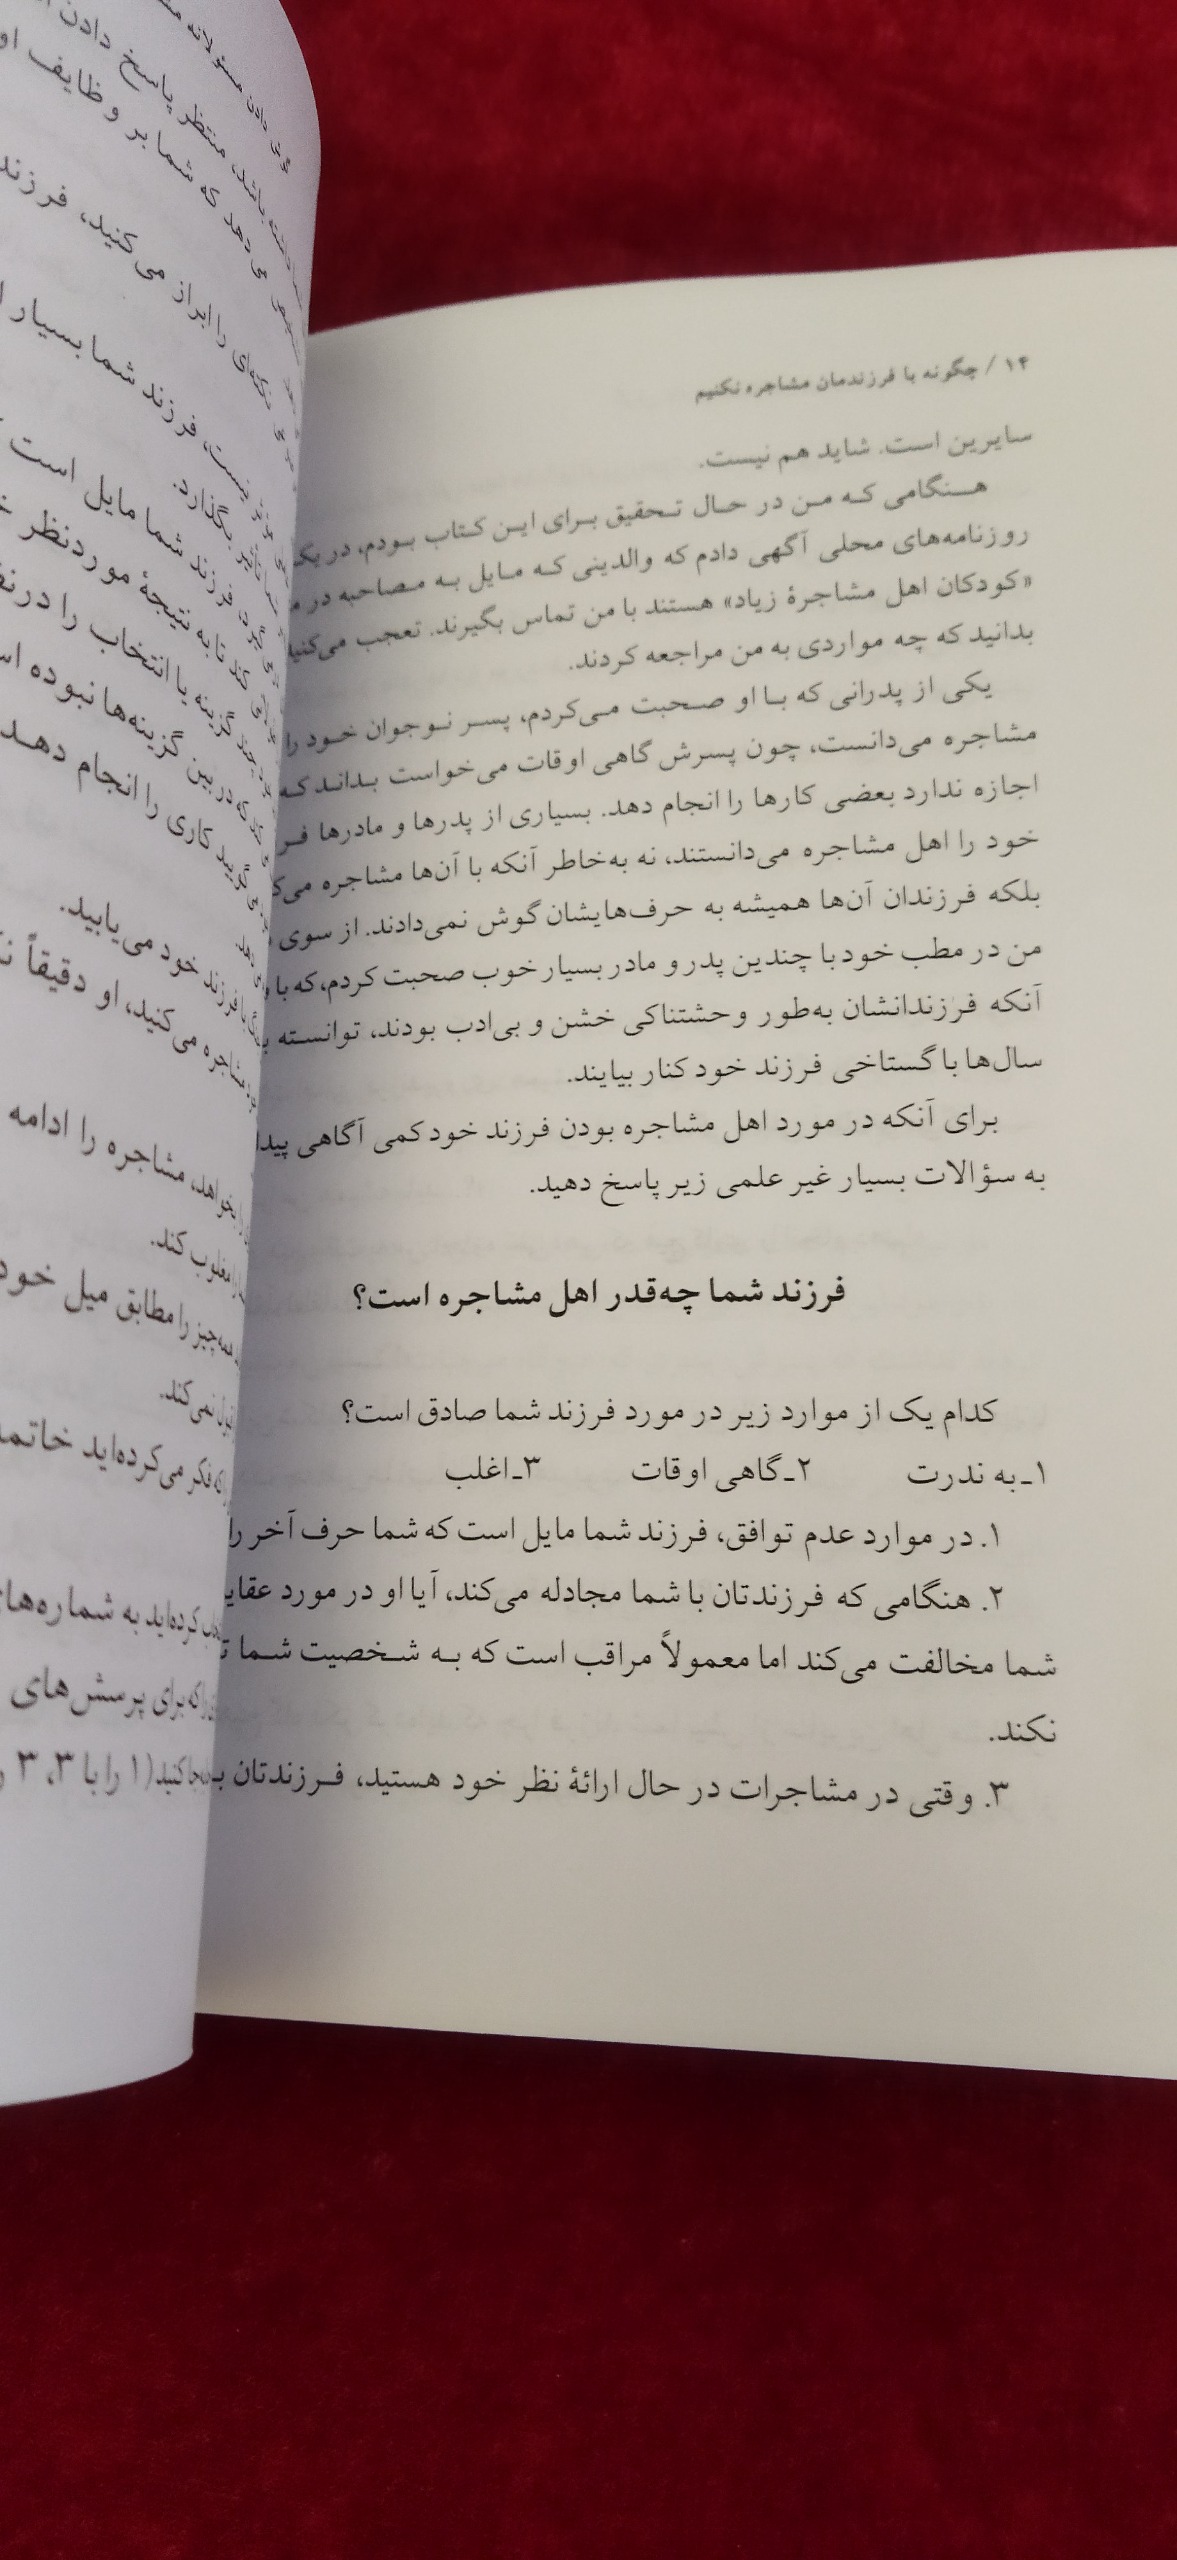 ۱۴ / چگونه با فرزندمان مشاجره نکنیم
سایرین است. شاید هم نیست.
هنگامی که من در حال تحقیق برای این کتاب بودم، در یک
روزنامه‌های محلی آگهی دادم که والدینی که مایل به مصاحبه در
«کودکان اهل مشاجرهٔ زیاد» هستند با من تماس بگیرند. تعجب می‌کنید
بدانید که چه مواردی به من مراجعه کردند.
یکی از پدرانی که با او صحبت می‌کردم، پسر نوجوان خود را
مشاجره می‌دانست، چون پسرش گاهی اوقات می‌خواست بداند که
اجازه ندارد بعضی کارها را انجام دهد. بسیاری از پدرها و مادرها
خود را اهل مشاجره می‌دانستند، نه به‌خاطر آنکه با آن‌ها مشاجره
بلکه فرزندان آن‌ها همیشه به حرف‌هایشان گوش نمی‌دادند. از سوی
من در مطب خود با چندین پدر و مادر بسیار خوب صحبت کردم، که با
آنکه فرزندانشان به‌طور وحشتناکی خشن و بی‌ادب بودند، توانسته
سال‌ها با گستاخی فرزند خود کنار بیایند.
برای آنکه در مورد اهل مشاجره بودن فرزند خود کمی آگاهی
به سؤالات بسیار غیر علمی زیر پاسخ دهید.
فرزند شما چه‌قدر اهل مشاجره است؟
کدام یک از موارد زیر در مورد فرزند شما صادق است؟
۱ـ به ندرت ۲ـ گاهی اوقات ۳ـ اغلب
۱. در موارد عدم توافق، فرزند شما مایل است که شما حرف آخر را
۲. هنگامی که فرزندتان با شما مجادله می‌کند، آیا او در مورد
شما مخالفت می‌کند اما معمولاً مراقب است که به شخصیت شما
نکند.
۳. وقتی در مشاجرات در حال ارائهٔ نظر خود هستید، فرزندتان
منتظر پاسخ دادن
می‌دهد که شما بر وظایف
را ابراز می‌کنید، فرزند
فرزند شما بسیار
تأثیر بگذارد.
فرزند شما مایل است
کند تا به نتیجهٔ موردنظر
چند گزینه یا انتخاب را
که در بین گزینه‌ها نبوده
کاری را انجام دهد
با فرزند خود می‌یابید.
مشاجره می‌کنید، او دقیقاً
بخواهد، مشاجره را ادامه
مغلوب کند.
را مطابق میل خود
نمی‌کند.
فکر می‌کرده‌اید
کرده‌اید به شماره‌های
که برای پرسش‌های
(۱ را با ۳، ۳